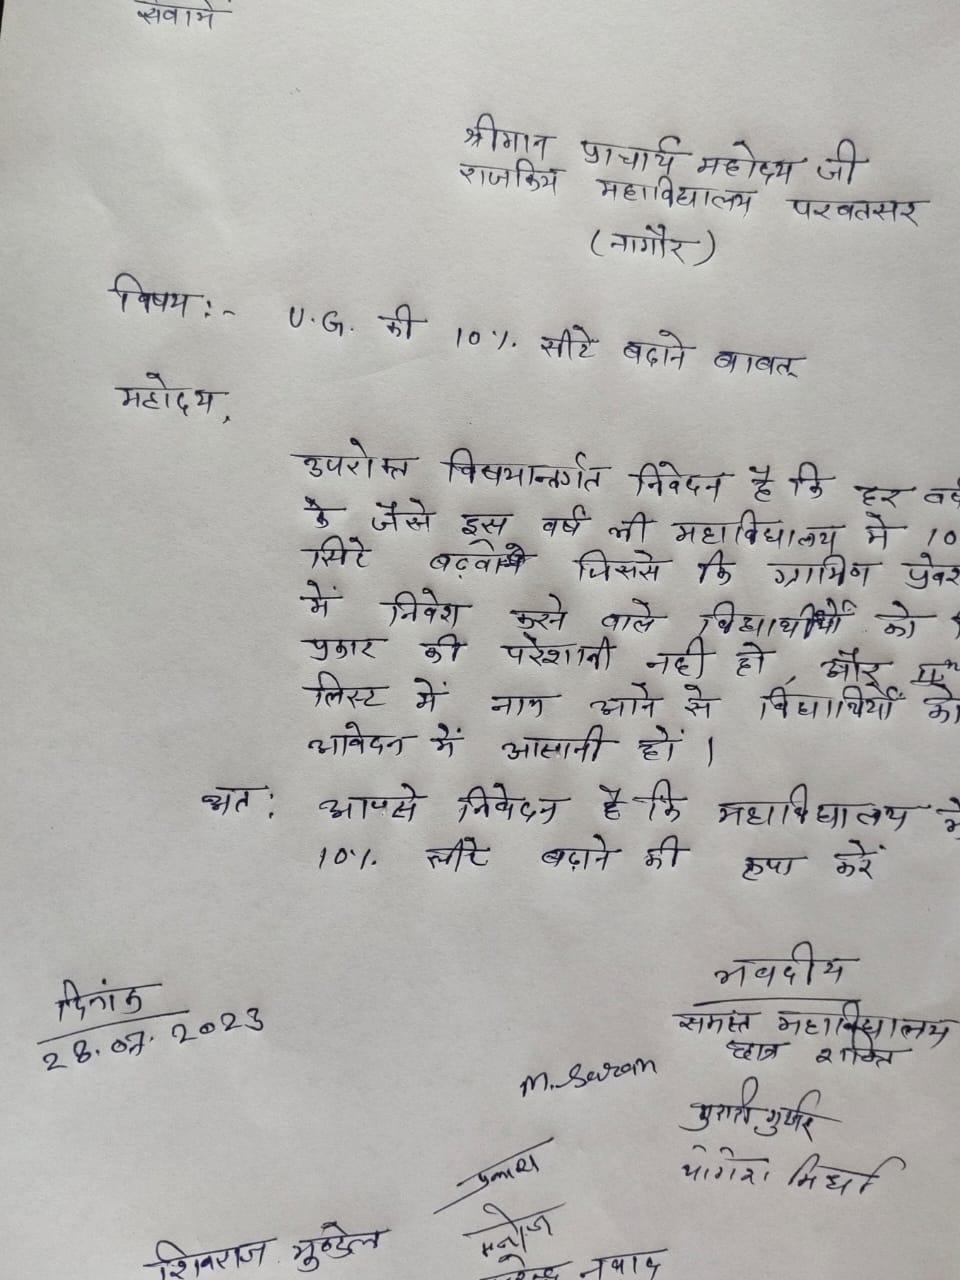 सेवामें
श्रीमान प्राचार्य महोदय जी
राजकिय महाविद्यालय परबतसर
(नागौर)
विषय :- U.G. की 10% सीटे बढाने बाबत्
महोदय,
उपरोक्त विषयान्तर्गत निवेदन है कि हर वर्ष
के जैसे इस वर्ष भी महाविद्यालय में 10
सिटे बढ़वाये जिससे कि ग्रामिण
में निवेश करने वाले विद्यार्थीयों को
प्रकार की परेशानी नही हो, और IInd
लिस्ट में नाम आने से विद्यार्थियों को
आवेदन में आसानी हों ।
अत: आपसे निवेदन है कि महाविद्यालय में
10% सीटे बढ़ाने की कृपा करें
भवदीय
दिनांक
समस्त महाविद्यालय
28.07.2023
छात्र शक्ति
M. Saran
गुर्जर
योगेश मिर्धा
प्रकाश
मनोज
शिवराज मुण्डेल